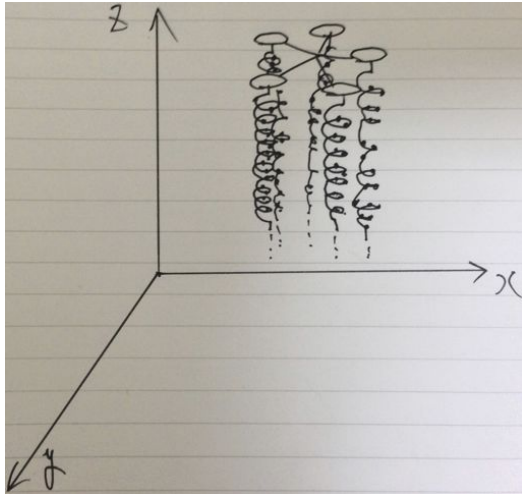 z
x
y